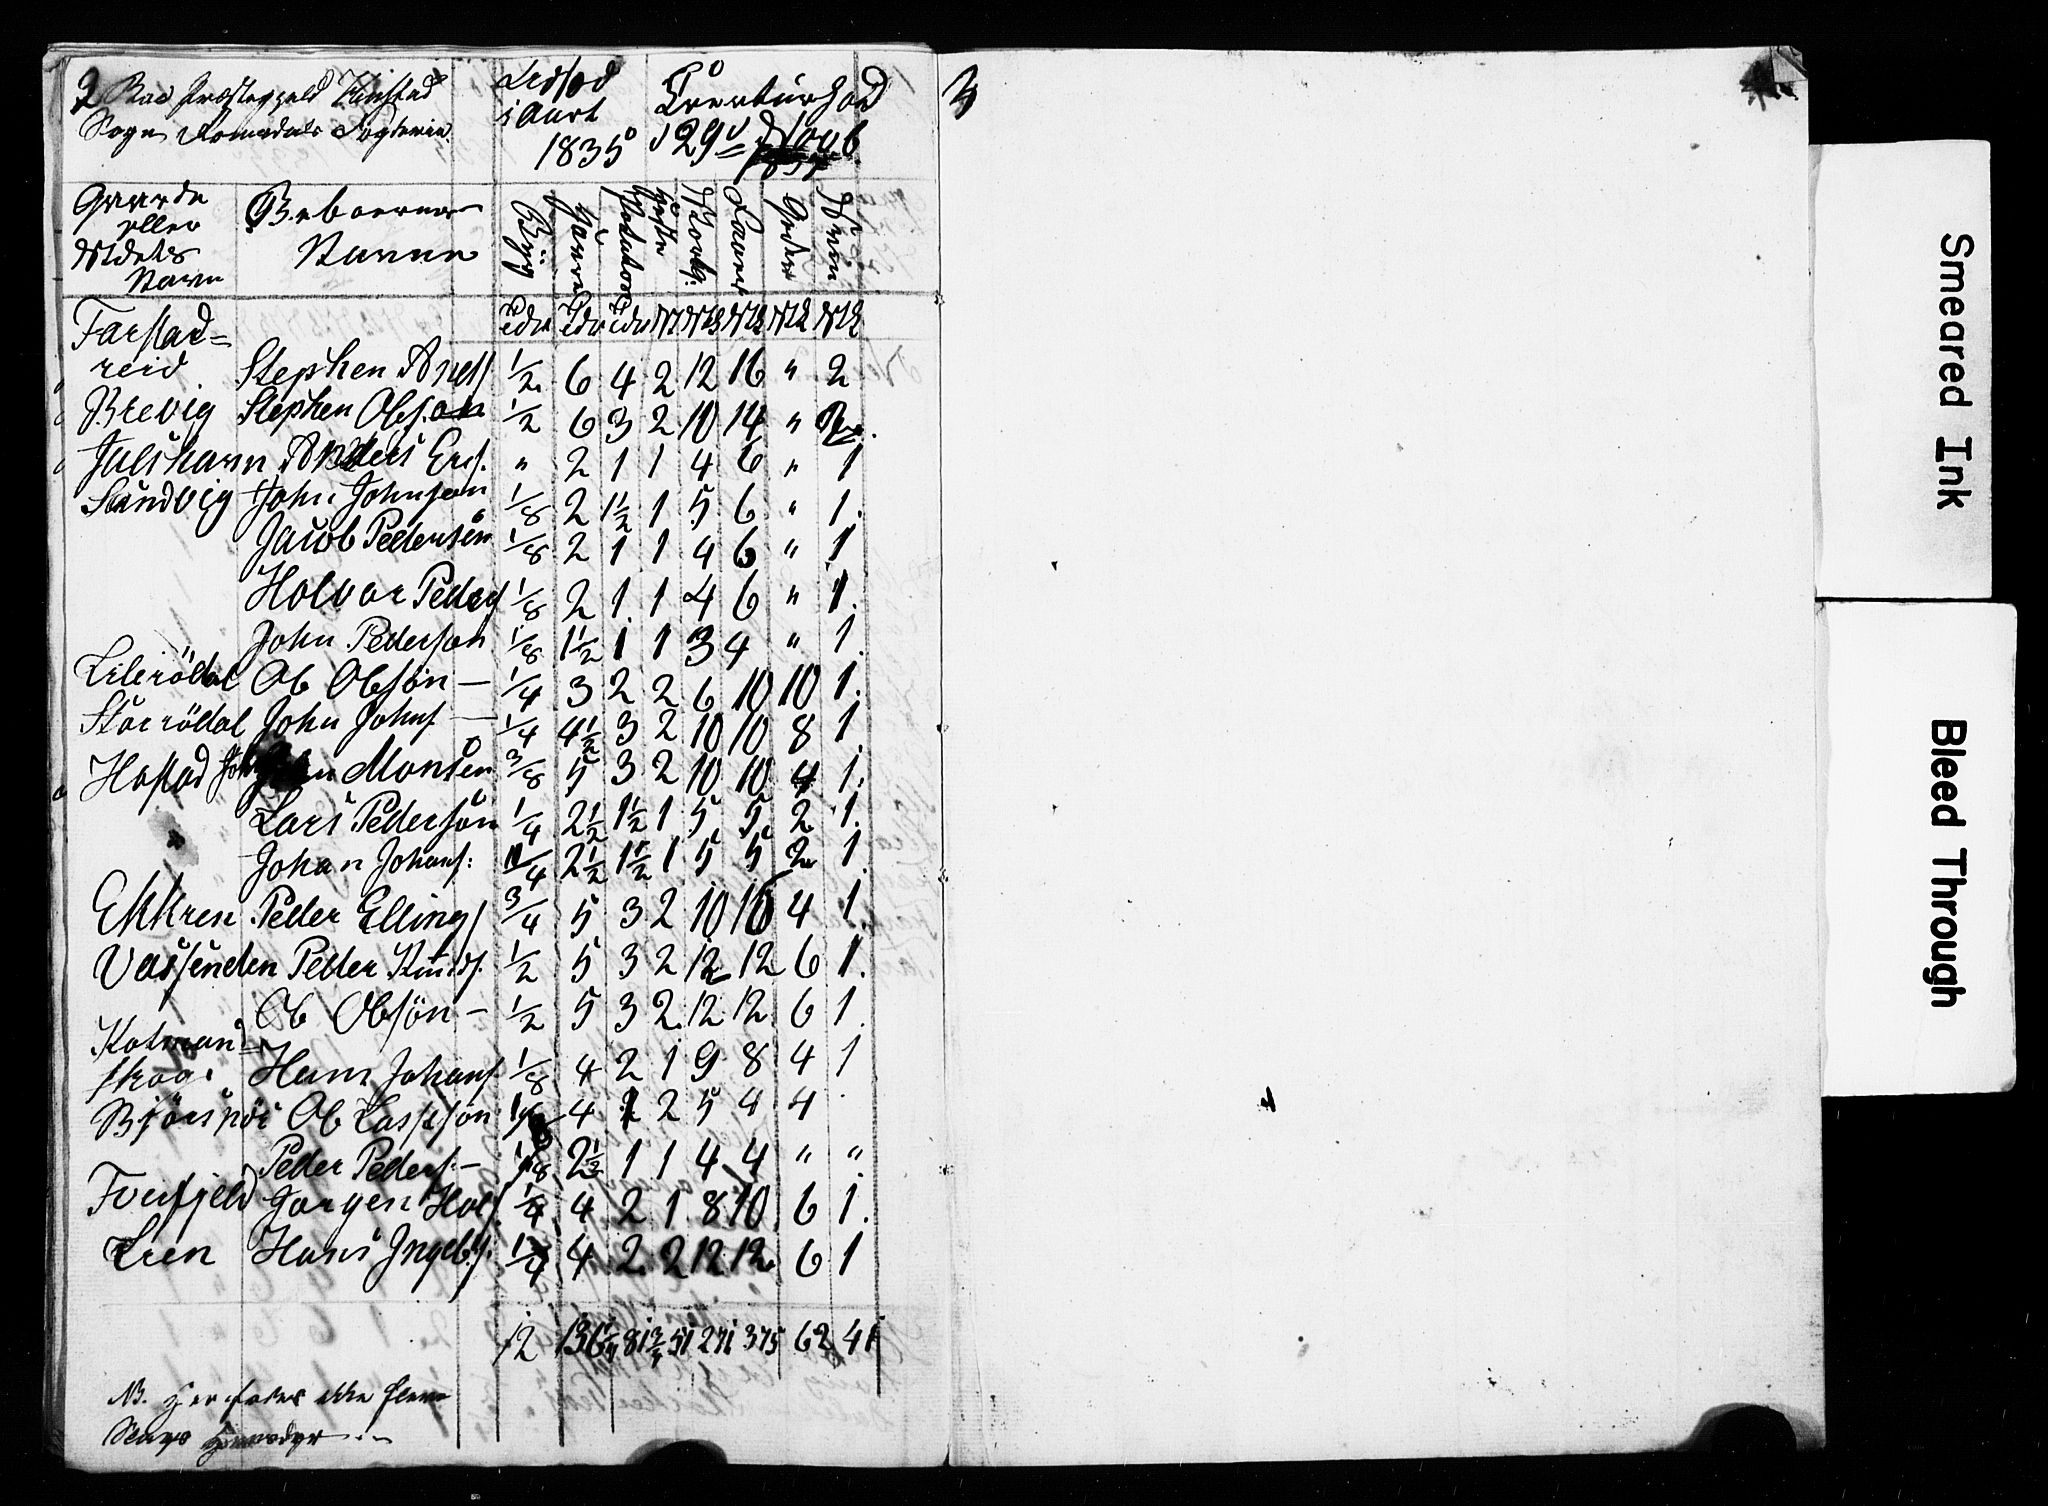 2 Bud Præstegjeld Hustad
Sogn Romsdals Fogderie.
Udsæd
i Aaret
1835
Creaturhold
d 29 Novb
1835
Gaarde
eller
Stedets
Navn
Beboernes
Navne
Byg
Havre
Potatos
Heste
Storfæ
Faarer
Geder
Sviin
Tdr Tdr Tdr Stk Stk Stk Stk
Farstad=
reid Stephen And. 1/2 6 4 2 12 16 " 2
Brevig Stephen Olsson 1/2 6 3 2 10 14 "
Julshavn Anders Er. " 2 1 1 4 6 " 1
Sandvig John Johnson 1/8 2 1 1/2 1 5 6 " 1.
Jacob Pedersen 1/8 2 1 1 4 6 " 1
Holvor Peders 1/8 2 1. 1 4 6 " 1.
John Pederson 1/8 1 1/2 1 1 3 4 " 1.
Lilerödal Ole Olsön — 1/4 3 2 2 6 10 10 1.
Storrödal John Johns. — 1/4 4 1/2 3 2 10 10 8 1.
Hostad John Monsen 3/8 5 3 2 10 10 4 1.
Lars Pedersön 1/4 2 1/2 1 1/2 1 5 5 2 1.
Johan Johans: 1/4 2 1/2 1 1/2 1 5 5 2 1.
Ekkren Peder Ellings 3/4 5 3 2 10 16 4 1.
Vassenden Peder Knuds. 1/2 5 3 2 12 12 6 1.
Ole Olsön — 1/2 5 3 2 12 12 6 1.
Kolman=
skog. Hans Johans. 1/8 4 2 1 9 8 4 1
Björsnös Ole Lassesön 4 2 5 4 4
Peder Peders. — 1/8 2 1/2 1 1 4 4 " "
Tverfjeld Jorgen Hol. 1/4 4 2 1 8 10 6 1.
Lien Hans Ingeb. 1/4 4 2 2 12 12 6 1
12 136 1/4 81 3/4 51 271 375 62 41
NB. her fødes ikke flere
Slags Huusdyr
3
Smeared Ink
Bleed Through